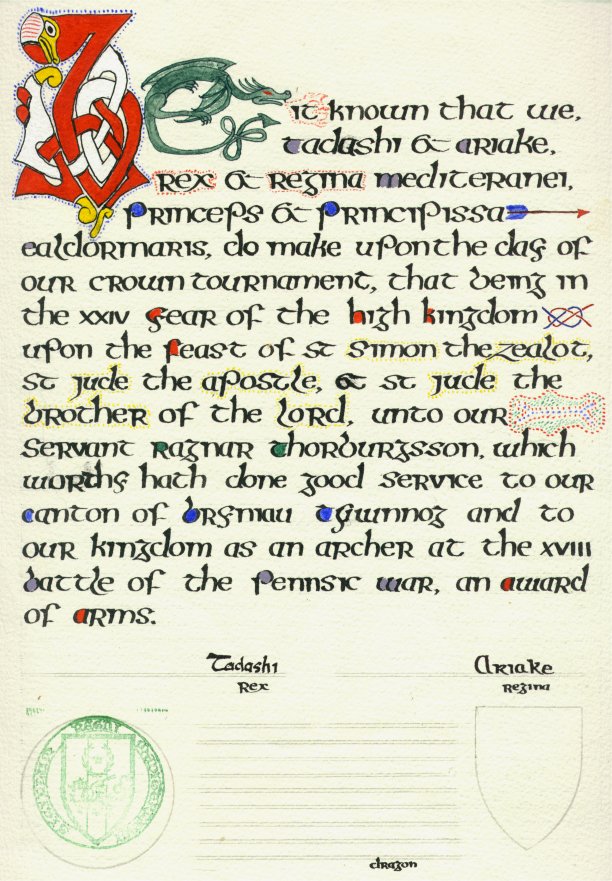 Be it known that we,
tadashi & ariake,
rex & regina mediteranei,
princeps & principissa
ealdormaris, do make upon the day of
our crown tournament, that being in
the xxiv year of the high kingdom
upon the feast of st simon the zealot,
st jude the apostle, & st jude the
brother of the lord, unto our
servant ragnar thorburgsson, which
worthy hath done good service to our
canton of bryniau tywynnog and to
our kingdom as an archer at the xviii
battle of the pennsic war, an award
of arms.
Tadashi
Rex
Ariake
Regina
dragon